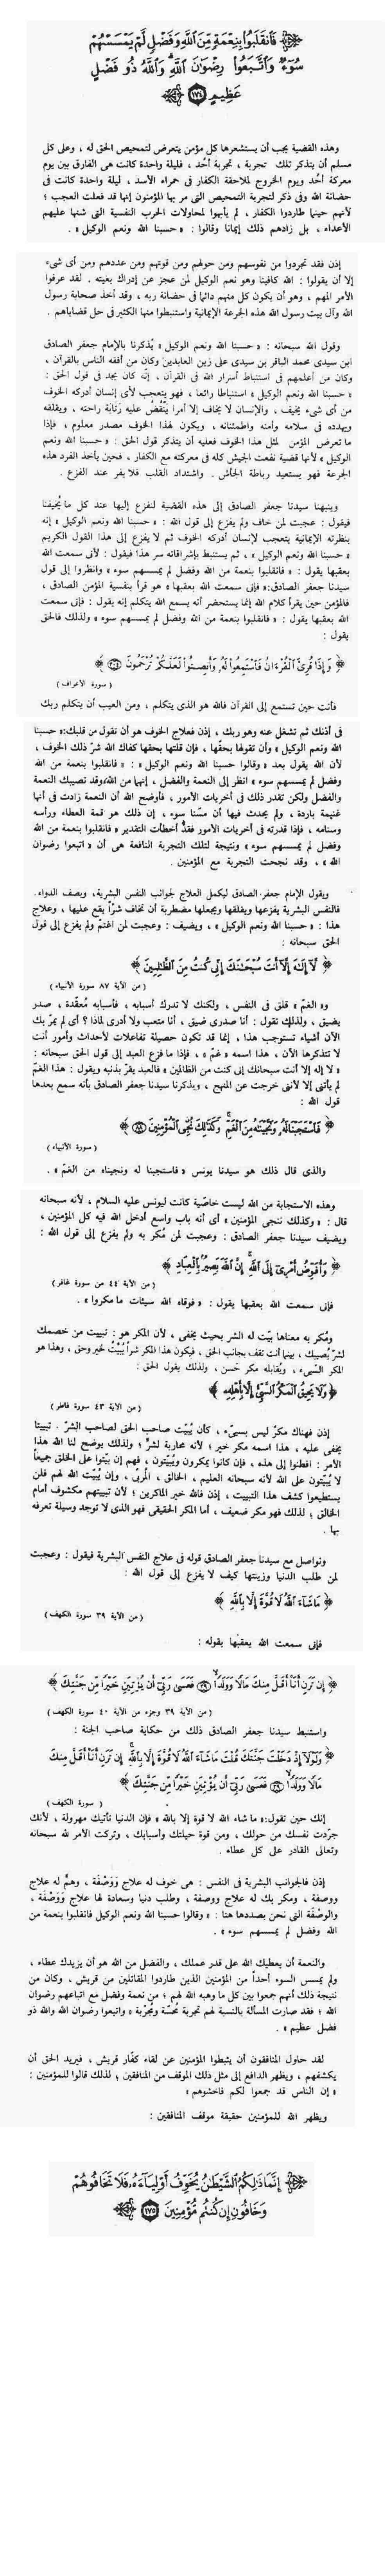 فَانقَلَبُوا بِنِعْمَةٍ مِّنَ اللَّهِ وَفَضْلٍ لَّمْ يَمْسَسْهُمْ
سُوٓءٌ وَاتَّبَعُوا رِضْوَانَ اللَّهِ وَاللَّهُ ذُو فَضْلٍ
عَظِيمٍ ١٧٤
وهذه القضية يجب أن يستشعرها كل مؤمن يتعرض لتمحيص الحق له ، وعلى كل
مسلم أن يتذكر تلك تجربة ، تجربة أُحد ، فليلة واحدة كانت هى الفارق بين يوم
معركة أُحد ويوم الخروج لملاحقة الكفار فى حمراء الأسد ، ليلة واحدة كانت فى
حضانة الله وفى ذكر لتجربة التمحيص التى مر بها المؤمنون إنها قد فعلت العجب ؛
لأنهم حينما طاردوا الكفار ، لم يأبهوا لمحاولات الحرب النفسية التى شنها عليهم
الأعداء ، بل زادهم ذلك إيمانا وقالوا : « حسبنا الله ونعم الوكيل » .
إذن فقد تجردوا من نفوسهم ومن حولهم ومن قوتهم ومن عددهم ومن أى شىء
إلا أن يقولوا : الله كافينا وهو نعم الوكيل لمن عجز عن إدراك بغيته . لقد عرفوا
الأمر المهم ، وهو أن يكون كل منهم دائما فى حضانة ربه ، وقد أخذ صحابة رسول
الله وآل بيت رسول الله هذه الجرعة الإيمانية واستنبطوا منها الكثير فى حل قضاياهم .
وقول الله سبحانه : « حسبنا الله ونعم الوكيل » يُذكرنا بالإمام جعفر الصادق
ابن سيدى محمد الباقر بن سيدى على زين العابدين وكان من أفقه الناس بالقرآن ،
وكان من أعلمهم فى استنباط أسرار الله فى القرآن ، إنّه كان يجد فى قول الحق :
« حسبنا الله ونعم الوكيل » استنباطا رائعا ، فهو يتعجب لأى إنسان أدركه الخوف
من أى شىء يخيف ، والإنسان لا يخاف إلا أمرا يَنْقُض عليه رَتَابة راحته ، ويقلقه
ويهدده فى سلامه وأمنه واطمئنانه ، ويكون لهذا الخوف مصدر معلوم ، فإذا
ما تعرض المؤمن لمثل هذا الخوف فعليه أن يتذكر قول الحق : « حسبنا الله ونعم
الوكيل » لأنها قضية نفعت الجيش كله فى معركته مع الكفار ، فحين يأخذ الفرد هذه
الجرعة فهو يستعيد رباطة الجأش . واشتداد القلب فلا يفر عند الفزع .
وينبهنا سيدنا جعفر الصادق إلى هذه القضية لنفزع إليها عند كل ما يُخيفنا
فيقول : عجبت لمن خاف ولم يفزع إلى قول الله : « حسبنا الله ونعم الوكيل » إنه
بنظرته الإيمانية يتعجب لإنسان أدركه الخوف ثم لا يفزع إلى هذا القول الكريم
« حسبنا الله ونعم الوكيل » ، ثم يستنبط بإشراقاته سر هذا فيقول : لأنى سمعت الله
بعقبها يقول : « فانقلبوا بنعمة من الله وفضل لم يمسسهم سوء » وانظروا إلى قول
سيدنا جعفر الصادق : « فإنى سمعت الله بعقبها » هو قرأ بنفسية المؤمن الصادق ،
فالمؤمن حين يقرأ كلام الله إنما يستحضر أنه يسمع الله يتكلم إنه يقول : فإنى سمعت
الله بعقبها يقول : « فانقلبوا بنعمة من الله وفضل لم يمسسهم سوء » ولذلك فالحق
يقول :
﴿ وَإِذَا قُرِئَ الْقُرْءَانُ فَاسْتَمِعُوا لَهُ وَأَنصِتُوا لَعَلَّكُمْ تُرْحَمُونَ ٢٠٤ ﴾
( سورة الأعراف )
فأنت حين تستمع إلى القرآن فالله هو الذى يتكلم ، ومن العيب أن يتكلم ربك
فى أذنك ثم تشغل عنه وهو ربك ، إذن فعلاج الخوف هو أن تقول من قلبك : « حسبنا
الله ونعم الوكيل » وأن تقولها بحقّها ، فإن قلتها بحقها كفاك الله شرّ ذلك الخوف ،
لأن الله يقول بعد « وقالوا حسبنا الله ونعم الوكيل » : « فانقلبوا بنعمة من الله
وفضل لم يمسسهم سوء » انظر إلى النعمة والفضل ، إنهما من الله وقد تصيبك النعمة
والفضل ولكن تقدر ذلك فى أخريات الأمور ، فأوضح الله أن النعمة زادت فى أنها
غنيمة باردة ، ولم يحدث فيها أن مسّنا سوء ، إن ذلك هو قمة العطاء ورأسه
وسنامه ، فإذا قدرته فى أخريات الأمور فقد أخطأت التقدير « فانقلبوا بنعمة من الله
وفضل لم يمسسهم سوء » ونتيجة لتلك التجربة النافعة هى أن « اتبعوا رضوان
الله » ، وقد نجحت التجربة مع المؤمنين .
ويقول الإمام جعفر الصادق ليكمل العلاج لجوانب النفس البشرية، ويصف الدواء .
فالنفس البشرية يفزعها ويقلقها ويجعلها مضطربة أن تخاف شراً يقع عليها ، وعلاج
هذا : « حسبنا الله ونعم الوكيل » ، ويضيف : وعجبت لمن اغتمّ ولم يفزع إلى قول
الحق سبحانه :
﴿ لَآ إِلَٰهَ إِلَّآ أَنتَ سُبْحَٰنَكَ إِنِّى كُنتُ مِنَ الظَّٰلِمِينَ ﴾
( من الآية ٨٧ سورة الأنبياء )
و« الغمّ » قلق فى النفس ، ولكنك لا تدرك أسبابه ، فأسبابه مُعقّدة ، صدر
يضيق ، ولذلك تقول : أنا صدرى ضيق ، أنا متعب ولا أدرى لماذا ؟ أى لم يمرّ بك
الآن أشياء تستوجب هذا ، إنما قد تكون حصيلة تفاعلات لأحداث وأمور أنت
لا تتذكرها الآن ، هذا اسمه « غمّ » ، فإذا ما فزع العبد إلى قول الحق سبحانه :
« لا إله إلا أنت سبحانك إنى كنت من الظالمين » فالعبد يقرّ بذنبه ويقول : هذا الغمّ
لم يأتنى إلا لأننى خرجت عن المنهج ، ويذكرنا سيدنا جعفر الصادق بأنه سمع بعدها
قول الله :
﴿ فَاسْتَجَبْنَا لَهُ وَنَجَّيْنَٰهُ مِنَ الْغَمِّ وَكَذَٰلِكَ نُـۨجِى الْمُؤْمِنِينَ ٨٨ ﴾
( سورة الأنبياء )
والذى قال ذلك هو سيدنا يونس « فاستجبنا له ونجيناه من الغمّ » .
وهذه الاستجابة من الله ليست خاصّية كانت ليونس عليه السلام ، لأنه سبحانه
قال : « وكذلك ننجى المؤمنين » أى أنه باب واسع أدخل الله فيه كل المؤمنين ،
ويضيف سيدنا جعفر الصادق : وعجبت لمن مُكر به ولم يفزع إلى قول الله :
﴿ وَأُفَوِّضُ أَمْرِىٓ إِلَى اللَّهِ إِنَّ اللَّهَ بَصِيرٌۢ بِالْعِبَادِ ﴾
( من الآية ٤٤ من سورة غافر )
فإنى سمعت الله بعقبها يقول : « فوقاه الله سيئات ما مكروا » .
ومُكر به معناها بيّت له الشر بحيث يخفى ، لأن المكر هو : تبييت من خصمك
لشرّ يُصيبك ، بينما أنت تقف بجانب الحق ، فيكون هذا المكر شراً يُبيّتُ لخير وحق ، وهذا هو
المكر السّيىء ، ويُقابله مكر حَسن ، ولذلك يقول الحق :
﴿ وَلَا يَحِيقُ الْمَكْرُ السَّيِّئُ إِلَّا بِأَهْلِهِ ﴾
( من الآية ٤٣ سورة فاطر )
إذن فهناك مكرٌ ليس بسيىء ، كأن يُبيّت صاحب الحق لصاحب الشرّ . تبييتا
يخفى عليه ، هذا اسمه مكر خير ؛ لأنه محاربة لشرّ ؛ ولذلك يوضح لنا الله هذا
الأمر : افطنوا إلى هذه ، فإن كانوا يمكرون ويُبيّتون ، فهم إن بيّتوا على الخلق جميعاً
لا يُبيّتون على الله لأنه سبحانه العليم ، الخالق ، المُربى ، وإن يُبيّت الله لهم فلن
يستطيعوا كشف هذا التبييت ، إذن فالله خير الماكرين ؛ لأن تبييتهم مكشوف أمام
الخالق ؛ لذلك فهو مكر ضعيف ، أما المكر الحقيقى فهو الذى لا توجد وسيلة تعرفه
بها .
ونواصل مع سيدنا جعفر الصادق قوله فى علاج النفس البشرية فيقول : وعجبت
لمن طلب الدنيا وزينتها كيف لا يفزع إلى قول الله :
﴿ مَا شَآءَ اللَّهُ لَا قُوَّةَ إِلَّا بِاللَّهِ ﴾
( من الآية ٣٩ سورة الكهف )
فإنى سمعت الله يعقبها بقوله :
﴿ إِن تَرَنِ أَنَا۠ أَقَلَّ مِنكَ مَالًا وَوَلَدًا ٣٩ فَعَسَىٰ رَبِّىٓ أَن يُؤْتِيَنِ خَيْرًا مِّن جَنَّتِكَ ﴾
( من الآية ٣٩ وجزء من الآية ٤٠ سورة الكهف )
واستنبط سيدنا جعفر الصادق ذلك من حكاية صاحب الجنة :
﴿ وَلَوْلَآ إِذْ دَخَلْتَ جَنَّتَكَ قُلْتَ مَا شَآءَ اللَّهُ لَا قُوَّةَ إِلَّا بِاللَّهِ إِن تَرَنِ أَنَا۠ أَقَلَّ مِنكَ
مَالًا وَوَلَدًا ٣٩ فَعَسَىٰ رَبِّىٓ أَن يُؤْتِيَنِ خَيْرًا مِّن جَنَّتِكَ ﴾
( سورة الكهف )
إنك حين تقول : « ما شاء الله لا قوة إلا بالله » فإن الدنيا تأتيك مهرولة ، لأنك
جرّدت نفسك من حولك ، ومن قوة حيلتك وأسبابك ، وتركت الأمر لله سبحانه
وتعالى القادر على كل عطاء .
إذن فالجوانب البشرية فى النفس : هى خوف له علاج وَوَصْفَة ، وهمٌّ له علاج
ووصفة ، ومكر بك له علاج ووصفة ، وطلب دنيا وسعادة لها علاج وَوَصْفَة ،
والوصْفَة التى نحن بصددها هنا : « وقالوا حسبنا الله ونعم الوكيل فانقلبوا بنعمة من
الله وفضل لم يمسسهم سوء » .
والنعمة أن يعطيك الله على قدر عملك ، والفضل من الله هو أن يزيدك عطاء ،
ولم يمسس السوء أحداً من المؤمنين الذين طاردوا المقاتلين من قريش ، وكان من
نتيجة ذلك أنهم جمعوا بين كل ما وهبه الله لهم ؛ من نعمة وفضل مع اتباعهم رضوان
الله ؛ فقد صارت المسألة بالنسبة لهم تجربة مُحسّة ومُجرّبة « واتبعوا رضوان الله والله ذو
فضل عظيم » .
لقد حاول المنافقون أن يثبطوا المؤمنين عن لقاء كفّار قريش ، فيريد الحق أن
يكشفهم ، ويظهر الدافع إلى مثل ذلك الموقف من المنافقين ؛ لذلك قالوا للمؤمنين :
« إن الناس قد جمعوا لكم فاخشوهم »
ويظهر الله للمؤمنين حقيقة موقف المنافقين :
إِنَّمَا ذَٰلِكُمُ الشَّيْطَٰنُ يُخَوِّفُ أَوْلِيَآءَهُ فَلَا تَخَافُوهُمْ
وَخَافُونِ إِن كُنتُم مُّؤْمِنِينَ ١٧٥